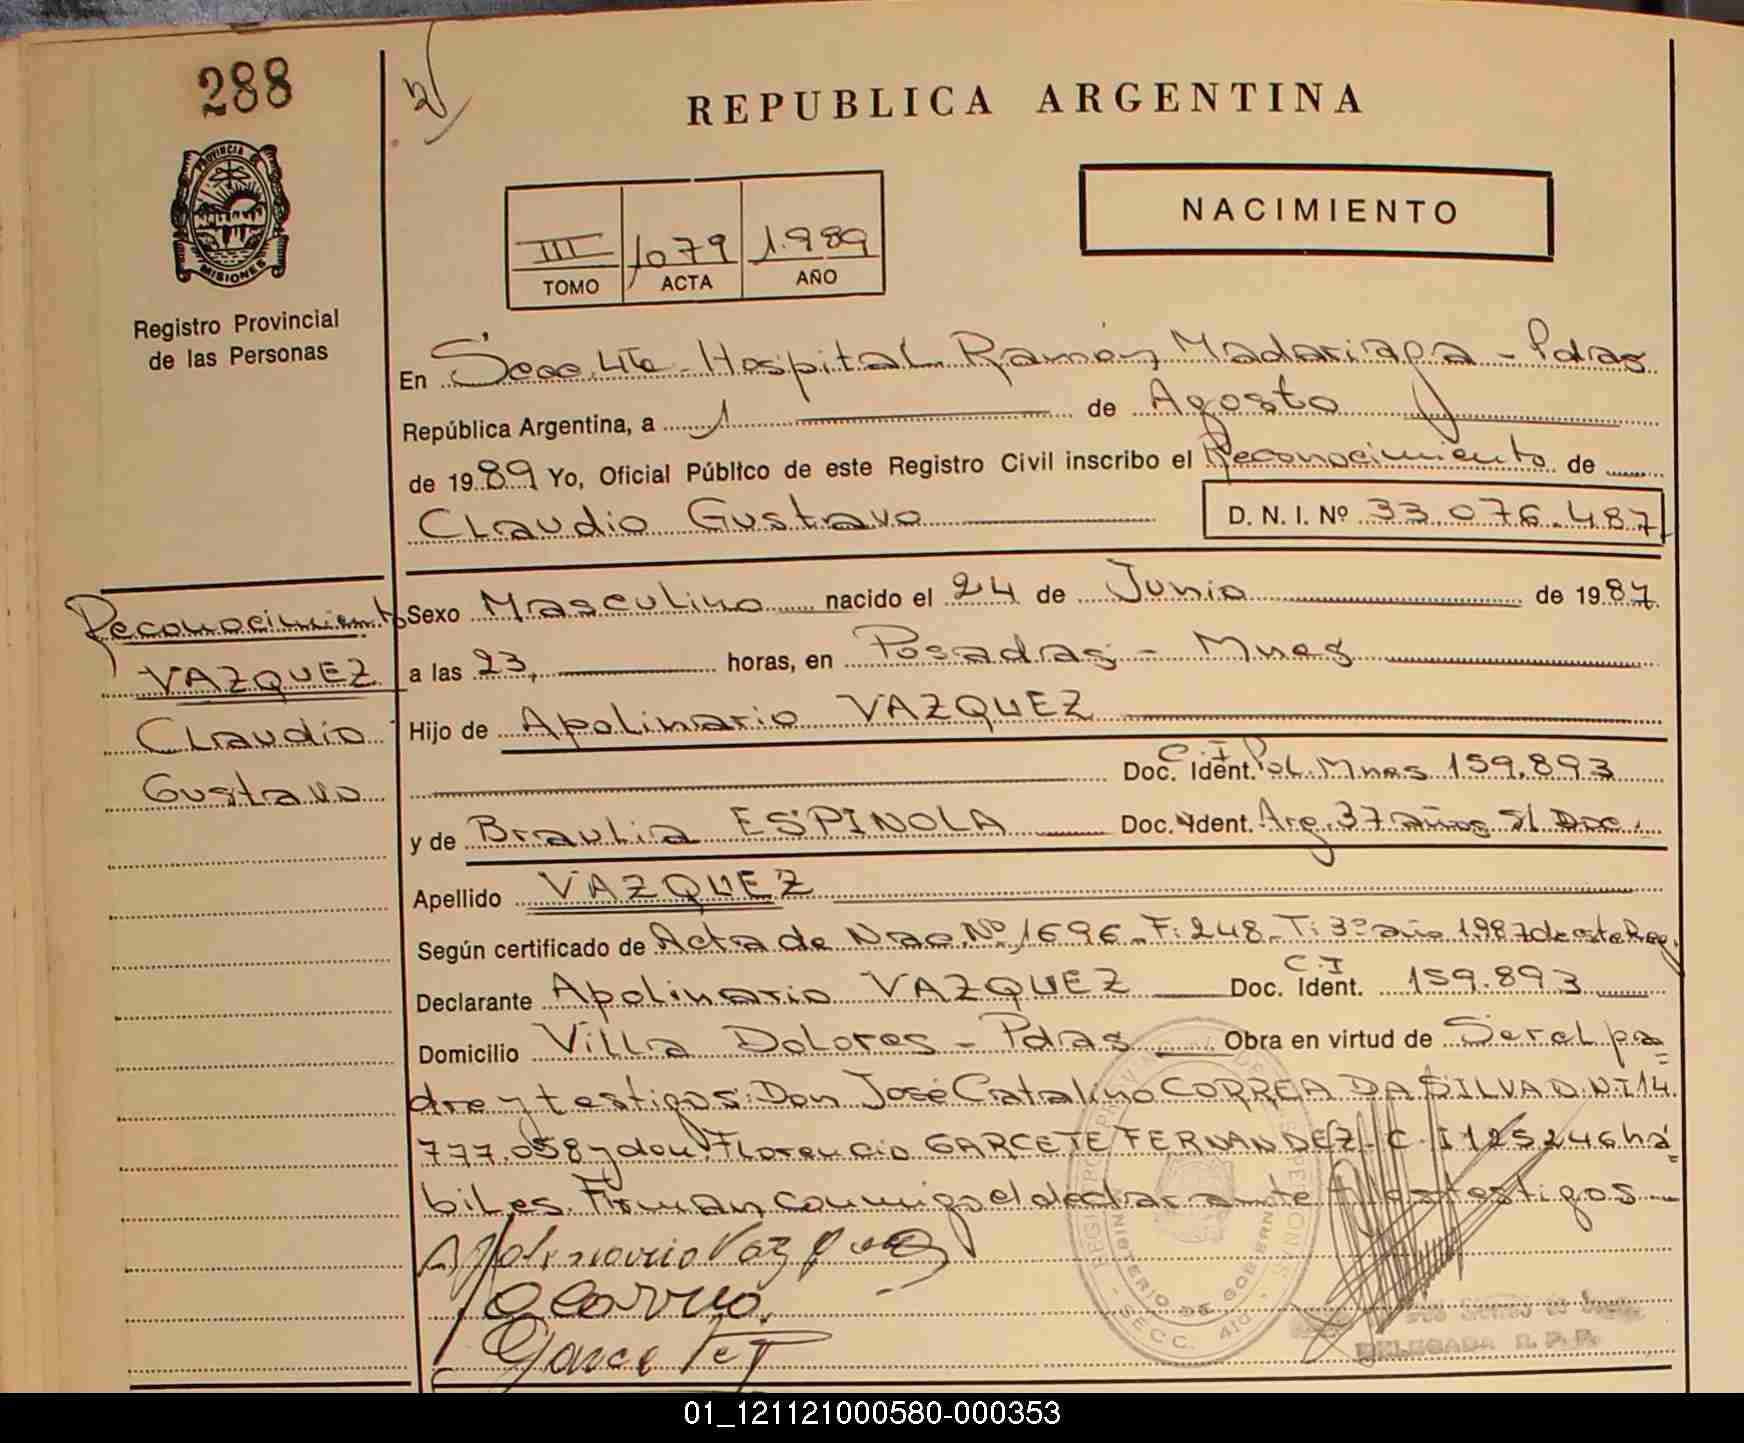 288
REPUBLICA ARGENTINA
PROVINCIA
MISIONES
Registro Provincial
de las Personas
III 1079 1.989
TOMO ACTA AÑO
NACIMIENTO
En Secc. 4ta - Hospital Ramón Madariaga - Pdas
República Argentina, a 1 de Agosto
de 1989 Yo, Oficial Público de este Registro Civil inscribo el Reconocimiento de
Claudio Gustavo D. N. I. Nº 33.076.487
Reconocimiento
VAZQUEZ
Claudio
Gustavo
Sexo Masculino nacido el 24 de Junio de 1987
a las 23, horas, en Posadas - Mnes
Hijo de Apolinario VAZQUEZ
Doc. Ident. C.I Pol. Mnes 159.893
y de Braulia ESPINOLA Doc. Ident. Arg. 37 años s/ Doc.
Apellido VAZQUEZ
Según certificado de Acta de Nac. Nº 1696 - F: 248 - T: 3º año 1987 de este Reg.
Declarante Apolinario VAZQUEZ Doc. Ident. C.I 159.893
Domicilio Villa Dolores - Pdas Obra en virtud de Ser el pa=
dre y testigos: Don José Catalino CORREA DA SILVA D.N.I 14.
777.058 y don Florencio GARCETE FERNANDEZ - C.I 125246 há=
biles. Firman conmigo el declarante y los testigos
Apolinario Vazquez
Garcete
MINISTERIO DE GOBIERNO
SECC. 4ta
DELEGADA R. P. P.
01_121121000580-000353